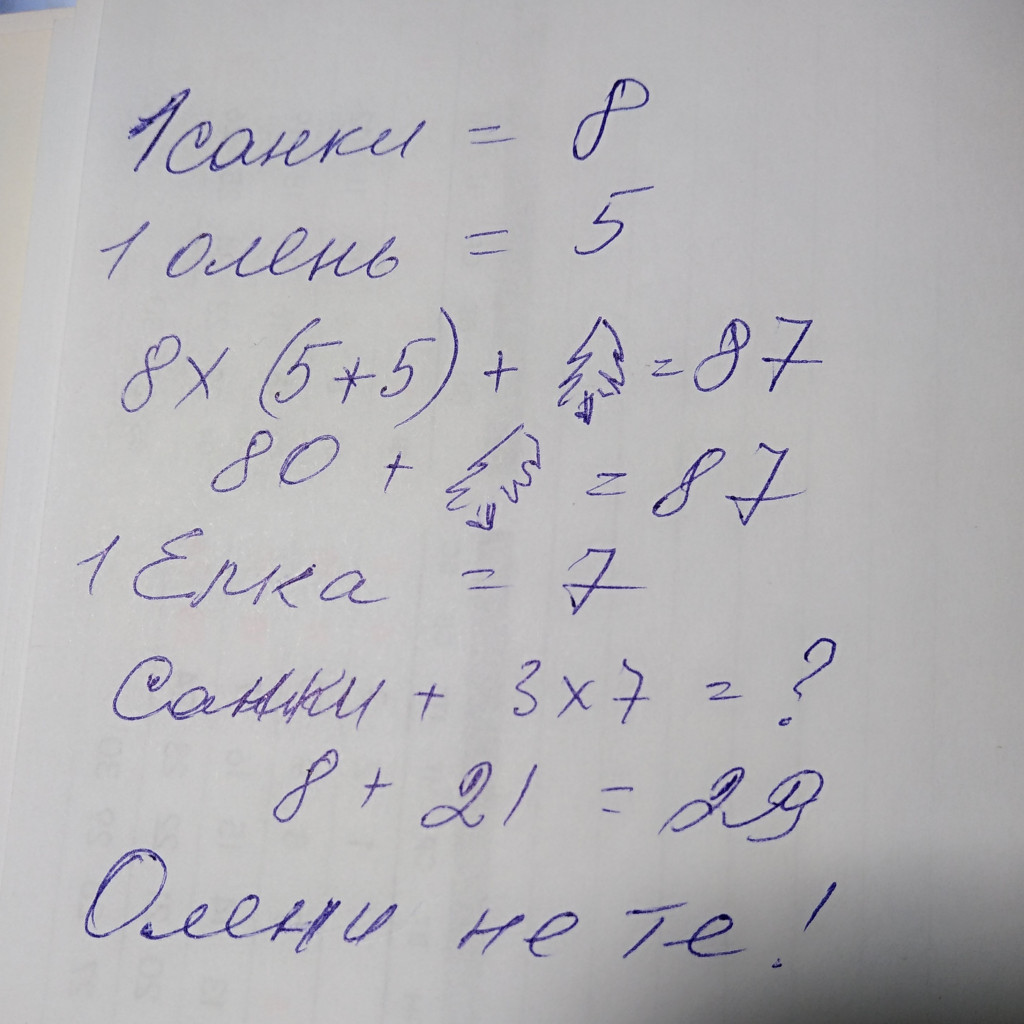 1 санки = 8
1 олень = 5
8 х (5+5) + = 87
80 + = 87
1 Елка = 7
Санки + 3 х 7 = ?
8 + 21 = 29
Олени не те!